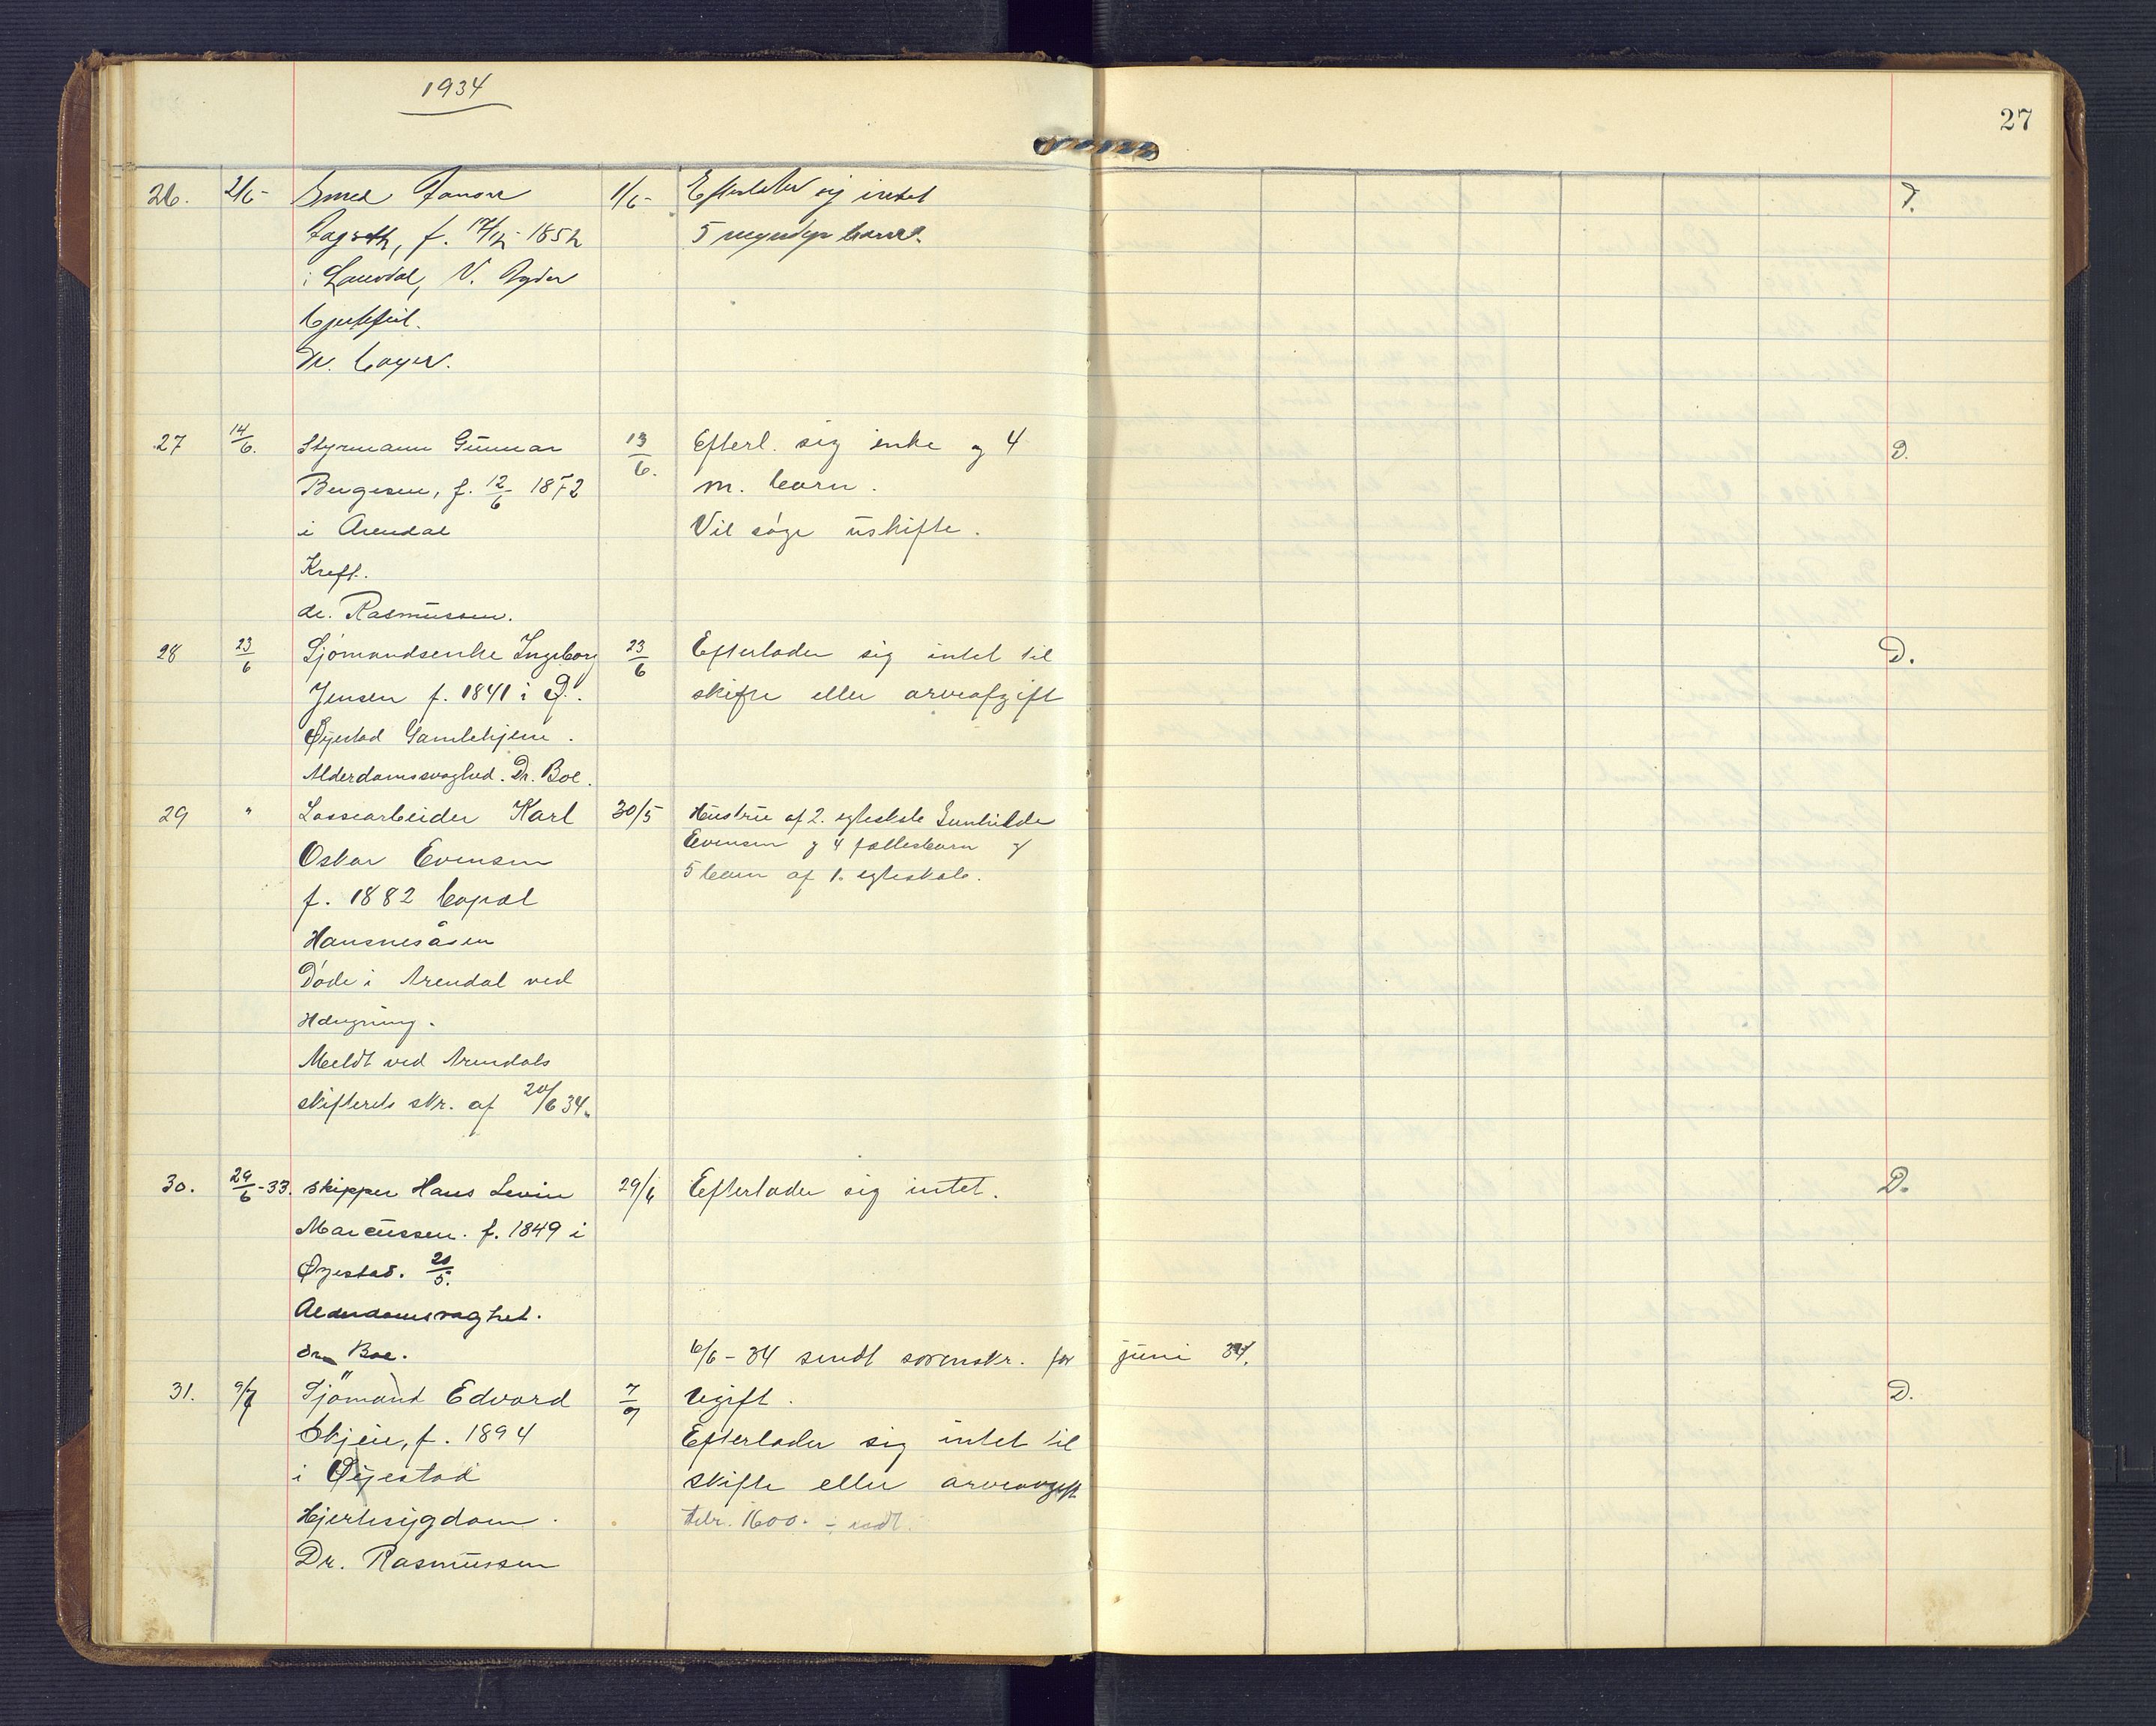 1934
27
26. 2/6 - Smed 1/6 - Efterlater sig intet D.
f. 1852 5 myndige barn.
i V. Agder
Hjertefeil.
Dr.
27 14/6. Styrmann Gunnar 13/6. Efterl. sig enke og 4 D.
Bergesen, f. 12/6 1872 m. barn.
i Arendal Vil søge uskifte.
Kreft.
dr. Rasmussen.
28 23/6 Sjömandsenke Ingeborg 23/6 Efterlader sig intet til D.
Jensen f. 1841 i Ö. skifte eller arveafgift
Øyestad Gamlehjem.
Alderdomssvaghed. Dr. Boe.
29 " Lossearbeider Karl 30/5 Hustru af 2. egteskab Gunhilde
Oskar Evensen Evensen og 4 fællesbarn og
f. 1882 bopæl 5 barn af 1. egteskab.
Hansnesåsen
Døde i Arendal ved
Hængning.
Meldt ved Arendals
skifterets skr. af 20/6 34.
30. 29/6 - 33. skipper Hans Levin 29/6 Efterlader sig intet. D.
Marcussen. f. 1849 i
Øyestad. 20/5.
Alderdomsvaghet.
dr. Boe. 6/6 - 34 sendt sorenskr. for juni 34.
31. 9/7 Sjömand Edvard 7/7 Ugift. D.
Skjeie, f. 1894 Efterlader sig intet til
i Øyestad skifte eller arveavgift
Hjertesygdom. 1600. -
Dr. Rasmussen